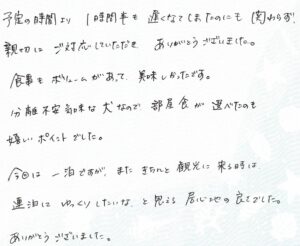 予定の時間より 1時間半も 遅くなてしまたのにも 関わらず、
親切に ご対応していただき ありがとうございました。
食事も ボリュームがあって、美味しかったです。
分離不安気味な犬なので 部屋食が 選べたのも
嬉しいポイントでした。
今回は 一泊ですが、また きちんと 観光に 来る時は
連泊に ゆっくりしたいな、と 思える 居心地の良さでした。
ありがとうございました。